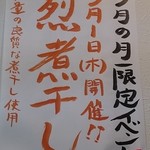 月の月一限定イベン
月1日(木)開催!!
烈煮干し
の良質な煮干し使用